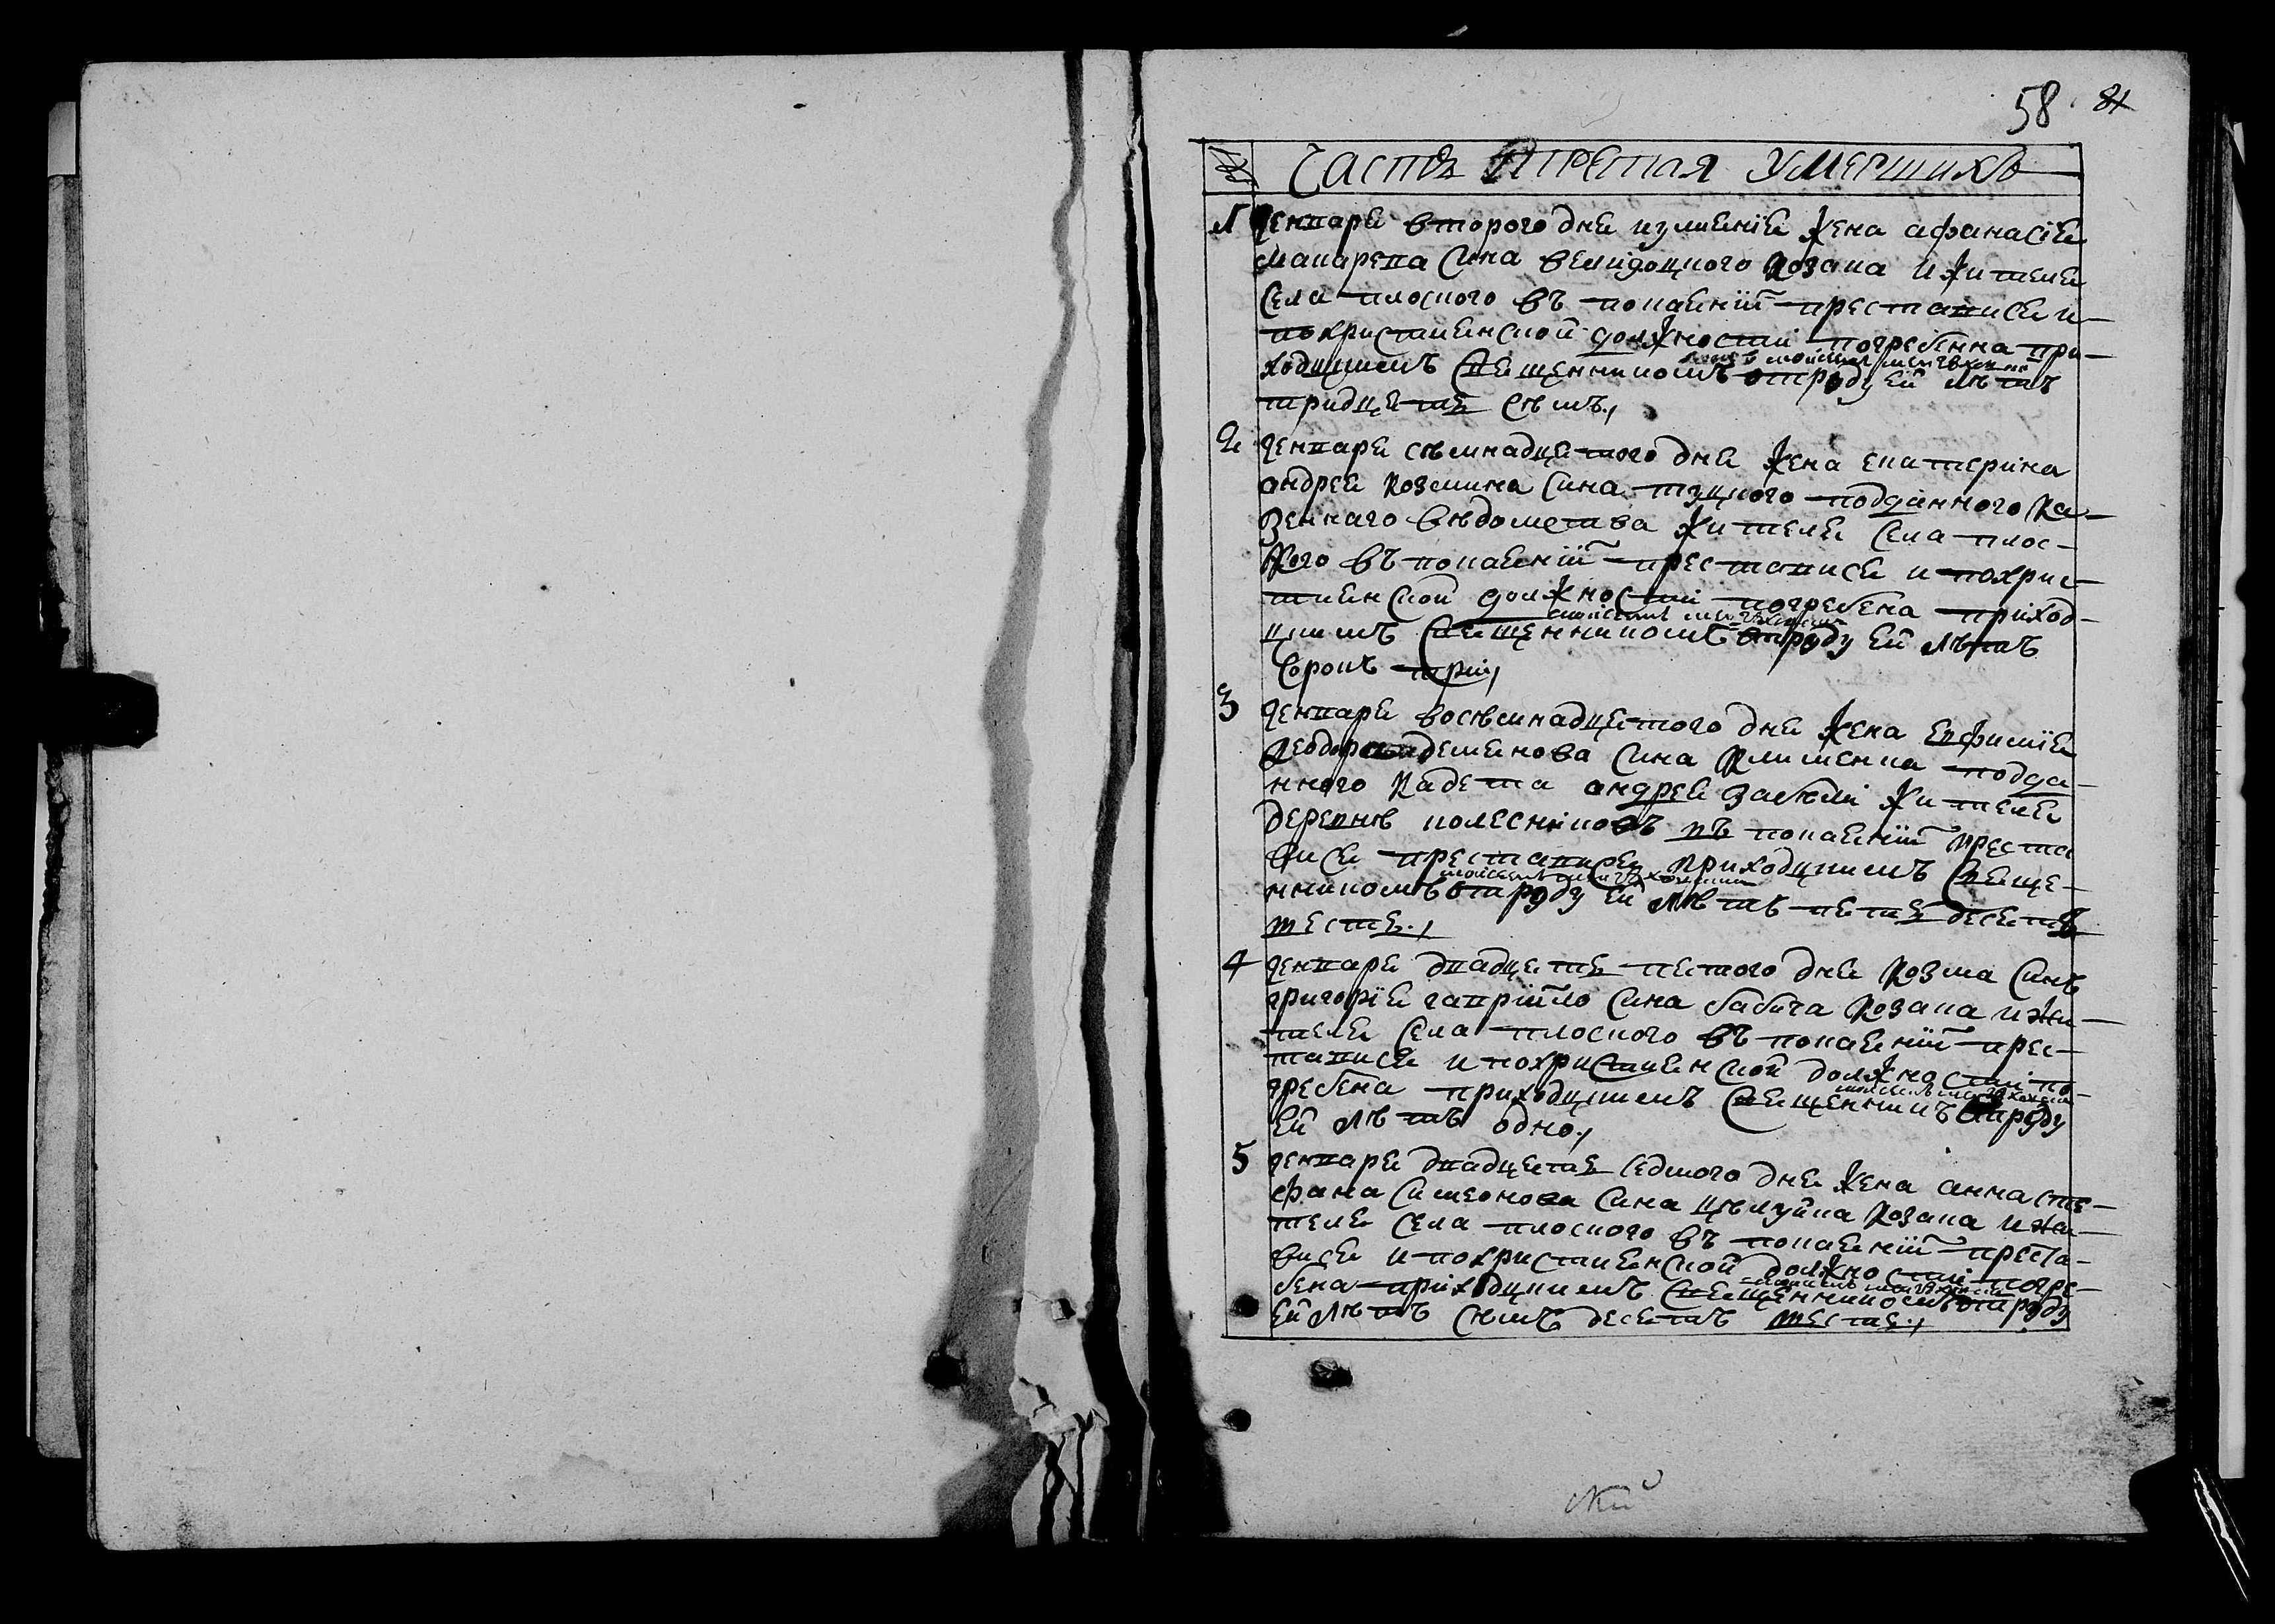 58 81
№ Часть третая умершихъ
1 Генваря второго дня жена афанасия
Макарева сина козака и жителя
Села плоского въ покаянии преставися и
похристиянской должности погребенна при-
ходцкимъ священникомъ отроду ей лѣтъ
тридцять сѣмъ
2 Генваря сѣмнадцятого дня жена екатерина
андрея козмина сина подданного ка-
зенного вѣдомства жителя Села плос-
кого въ покаянии преставися и похрис-
тиянской должности погребена приход-
цкимъ священникомъ отроду ей лѣтъ
Сорокъ три
3 Генваря восѣмнадцятого дня жена евфимия
Феодора сина Клименка подда-
нного Кадета андрея Забѣли жителя
деревнѣ колесниковъ въ покаянии преста
вися преставися приходцкимъ свяще-
нникомъ отроду ей лѣтъ пять десятъ
шесть
4 Генваря двадцять пятого дня Козма Синъ
григория гаврийло Сина бабича Козака и жи-
теля Села плоского въ покаянии прес-
тавися и похристиянской должности по-
гребена приходцкимъ священникъ отроду
ей лѣтъ одно
5 Генваря двадцять седмого дня жена анна сте-
фана Симеонова Сина Козака и жи-
теля Села плоского въ покаянии преста-
вися и похристиянской должности погре-
бена приходцкимъ священникомъ отроду
ей лѣтъ сѣмъ десятъ шесть